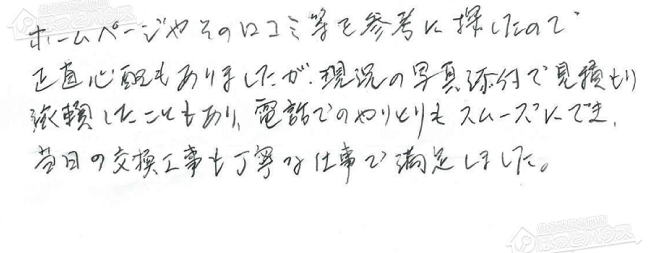 ホームページやその口コミ等を参考に探したので
正直心配もありましたが、現況の写真添付で見積もり
依頼したこともあり、電話でのやりとりもスムーズにでき、
当日の交換工事も丁寧な仕事で満足しました。